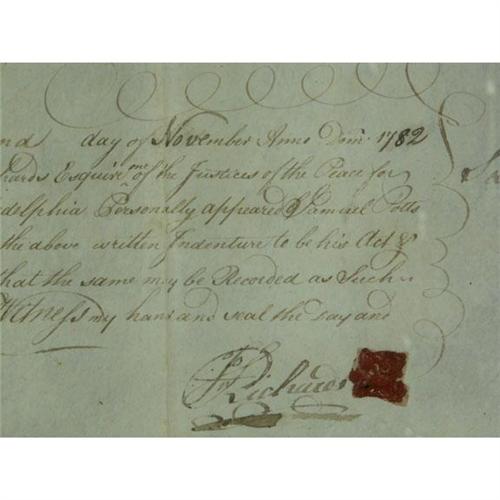 nd day of November Anno Dom: 1782
hards Esquire one of the Justices of the Peace for
adelphia Personally appeared Samuel Potts
the above written Indenture to be his Act &
that the same may be Recorded as Such
Witness my hand and seal the Day and
Richards